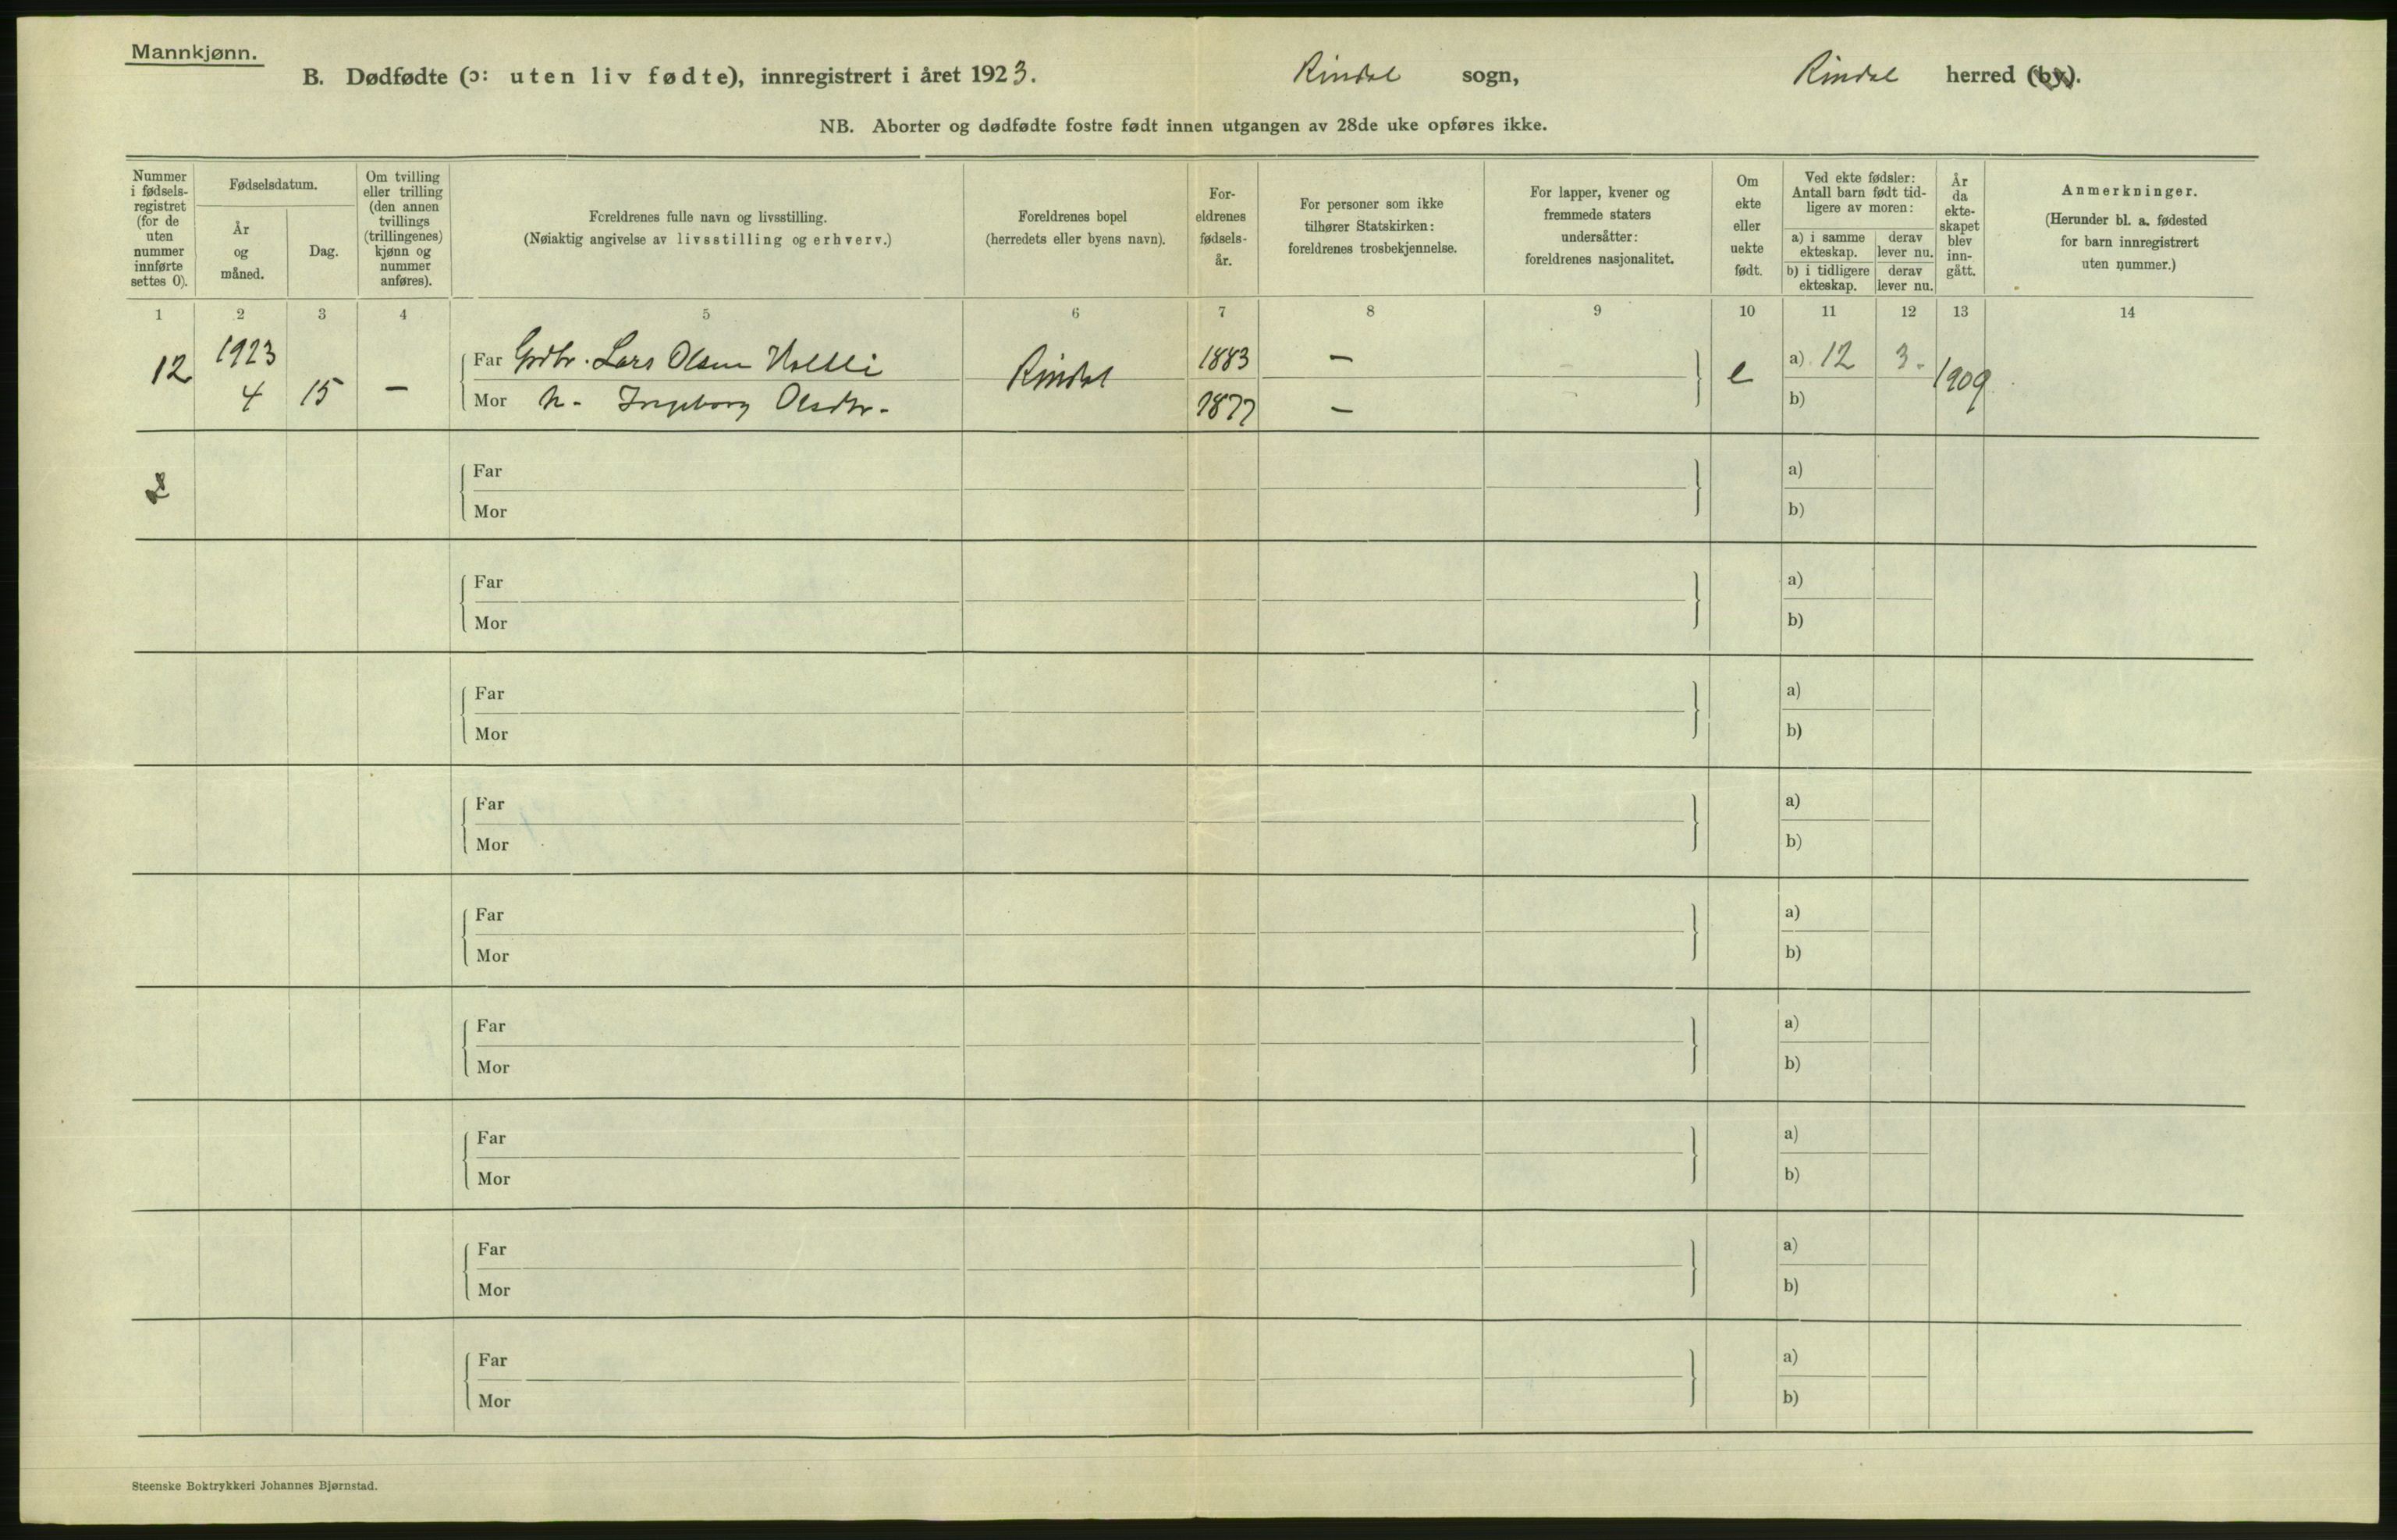 Mannkjønn.
B. Dødfødte (ɔ: uten liv fødte), innregistrert i året 1923. Rindal sogn, Rindal herred (by).
NB. Aborter og dødfødte fostre født innen utgangen av 28de uke opføres ikke.
Nummer i fødsels-registret (for de uten nummer innførte settes 0).
Fødselsdatum.
År og måned.
Dag.
Om tvilling eller trilling (den annen tvillings (trillingenes) kjønn og nummer anføres).
Foreldrenes fulle navn og livsstilling.
(Nøiaktig angivelse av livsstilling og erhverv.)
Foreldrenes bopel
(herredets eller byens navn).
For-eldrenes fødsels-år.
For personer som ikke tilhører Statskirken: foreldrenes trosbekjennelse.
For lapper, kvener og fremmede staters undersåtter: foreldrenes nasjonalitet.
Om ekte eller uekte født.
Ved ekte fødsler: Antall barn født tid-ligere av moren:
a) i samme ekteskap.
derav lever nu.
b) i tidligere ekteskap.
derav lever nu.
År da ekte-skapet blev inn-gått.
Anmerkninger.
(Herunder bl. a. fødested for barn innregistrert uten nummer.)
1 2 3 4 5 6 7 8 9 10 11 12 13 14
12 1923 4 15 — Far Grdbr. Lars Olsen Rindal 1883 — e a) 12 3. 1909
Mor h. Ingeborg Olsdtr. 1877 — b)
Far a)
Mor b)
Far a)
Mor b)
Far a)
Mor b)
Far a)
Mor b)
Far a)
Mor b)
Far a)
Mor b)
Far a)
Mor b)
Far a)
Mor b)
Far a)
Mor b)
Steenske Boktrykkeri Johannes Bjørnstad.